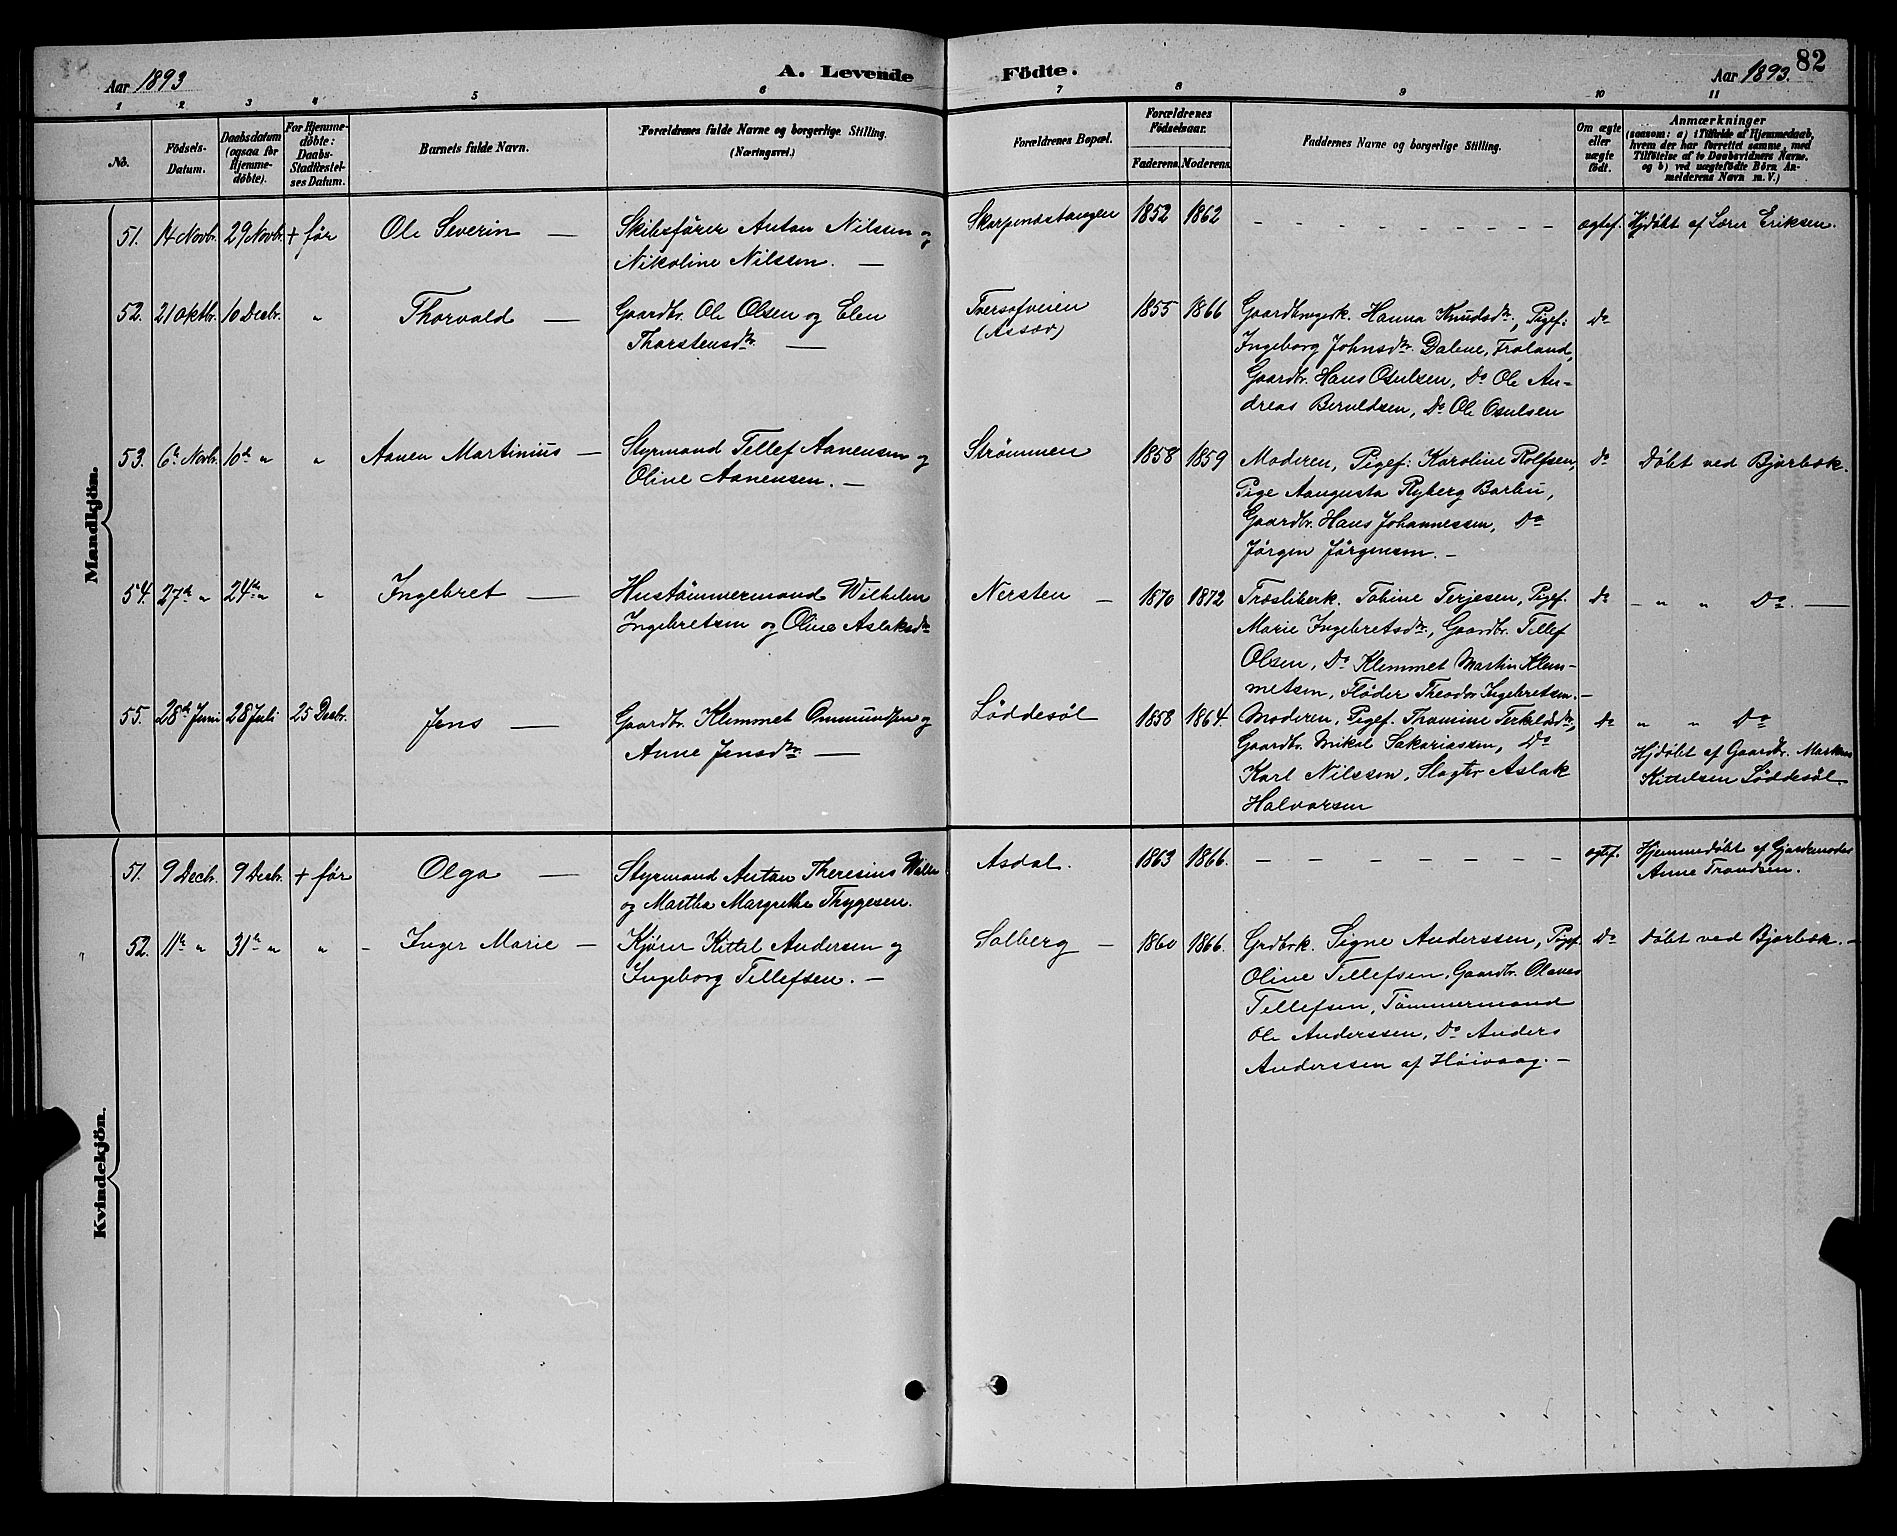 Aar 1893
A. Levende
Födte.
Aar 1893.
82
1 2 3 4 5 6 7 8 9 10 11
No.
Födsels-
Datum.
Daabsdatum
(ogsaa for
Hjemme-
døbte).
For Hjemme-
døbte:
Daabs-
Stadfæstel-
ses Datum.
Barnets fulde Navn.
Forældrenes fulde Navne og borgerlige Stilling.
(Næringsvei.)
Forældrenes Bopæl.
Forældrenes
Födselsaar.
Faderens. Moderens.
Faddernes Navne og borgerlige Stilling.
Om ægte
eller
uægte
født.
Anmærkninger
(saasom: a) i Tilfælde af Hjemmedaab,
hvem der har forrettet samme, med
Tilføielse af to Daabsvidners Navne,
og b) ved uægtefødte Börn An-
melderens Navn m. V.)
Mandkjön.
51. 14 Novbr. 29 Novbr. + før Ole Severin — Skibsfører Anton Nilsen og
Nikoline Nilsen. —
Skarpnestangen 1852 1862 – – – – – – – – – – – ægtef. Hjdøbt af Lærer Eriksen.
52. 21 Oktbr. 10 Decbr. " Thorvald — Gaardbr. Ole Olsen og Elen
Thorstensdtr. —
Tversofveien
(Assov)
1855 1866 Gaardbrugerk. Hanna Knudsdtr., Pigef:
Ingeborg Johnsdtr. Dalene, Froland,
Gaardbr. Hans Osulsen, Do Ole An-
dreas Beruldsen, Do Ole Osulsen
Do
53. 6te Novbr. 10de " " Aanen Martinius — Styrmand Tellef Aanensen og
Oline Aanensen. —
Strømmen 1858 1859 Moderen, Pigef: Karoline Rolfsen,
Pige Aangusta Ryberg Barbu,
Gaardbr. Hans Johannessen, Do
Jørgen Jørgensen. –
Do Døbt ved Bjorbæk.
54. 27de " 24de " " Ingebret — Hustømmermand Wilhelm
Ingebretsen og Oline Aslaksdtr
Nersten – 1870 1872 Træsliberk. Tobine Terjesen, Pigef.
Marie Ingebretsdtr., Gaardbr. Tellef
Olsen, Do Klemmet Martin Klem-
metsen, Fløder Theodor Ingebretsen. –
Do – " " Do. —
55. 28de Juni 28 Juli 25 Decbr. Jens — Gaardbr. Klemmet Ommundsen og
Anne Jensdtr —
Løddesøl 1858 1864. Moderen, Pigef. Thomine Terkelsdtr,
Gaardbr. Mikal Sakariassen, Do
Karl Nilssen, Slagter Aslak
Halvorsen
Do " " Do
Hjdøbt af Gaardbr. Markus
Kittelsen Løddesøl.
Kvindekjön.
51. 9 Decbr. 9 Decbr. + før Olga — Styrmand Anton Theresius
og Martha Margrethe Thygesen.
Asdal. 1863 1866. – – – – – – – – – – ægtef. Hjemmedøbt af Gjordemoder
Anne Trondsen.
52. 11te " 31te " " – Inger Marie – Kjører Kittel Andersen og
Ingeborg Tellefsen. –
Solberg – 1860 1866. Grdbrk. Signe Anderssen, Pigef
Oline Tellefsen, Gaardbr. Olaves
Tellefsen, Tømmermand
Ole Anderssen, Do Anders
Anderssen af Høivaag. –
Do Døbt ved Bjorbæk. –